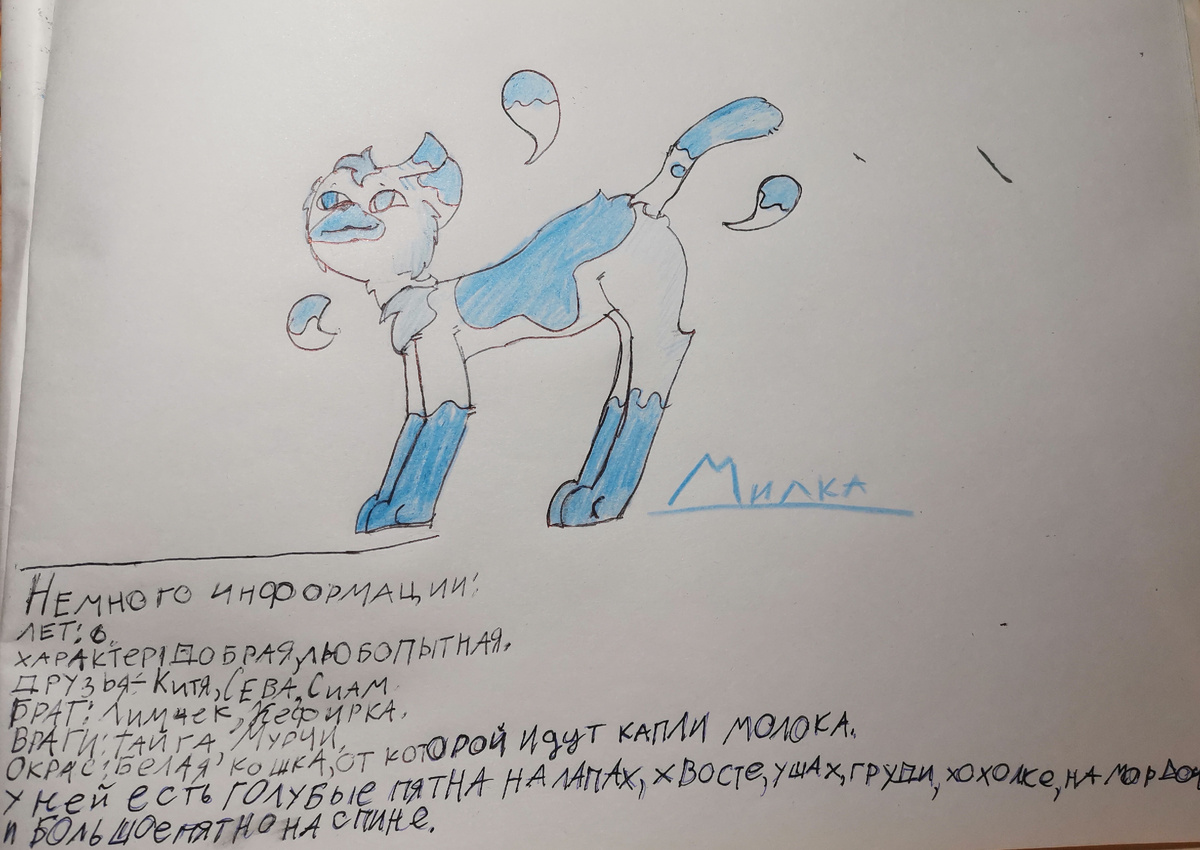 Милка
Немного информации:
ЛЕТ: 6.
ХАРАКТЕР: ДОБРАЯ, ЛЮБОПЫТНАЯ.
ДРУЗЬЯ- Китя, СЕВА, СИАМ.
БРАТ: Лимчек, Кефирка.
ВРАГИ: ТАЙГА, МУРЧИ.
ОКРАС: БЕЛАЯ КОШКА, ОТ КОТОРОЙ ИДУТ КАПЛИ МОЛОКА.
У НЕЙ ЕСТЬ ГОЛУБЫЕ ПЯТНА НА ЛАПАХ, ХВОСТЕ, УШАХ, ГРУДИ, ХОХОЛКЕ, НА МОРДОЧ
И БОЛЬШОЕ ПЯТНО НА СПИНЕ.